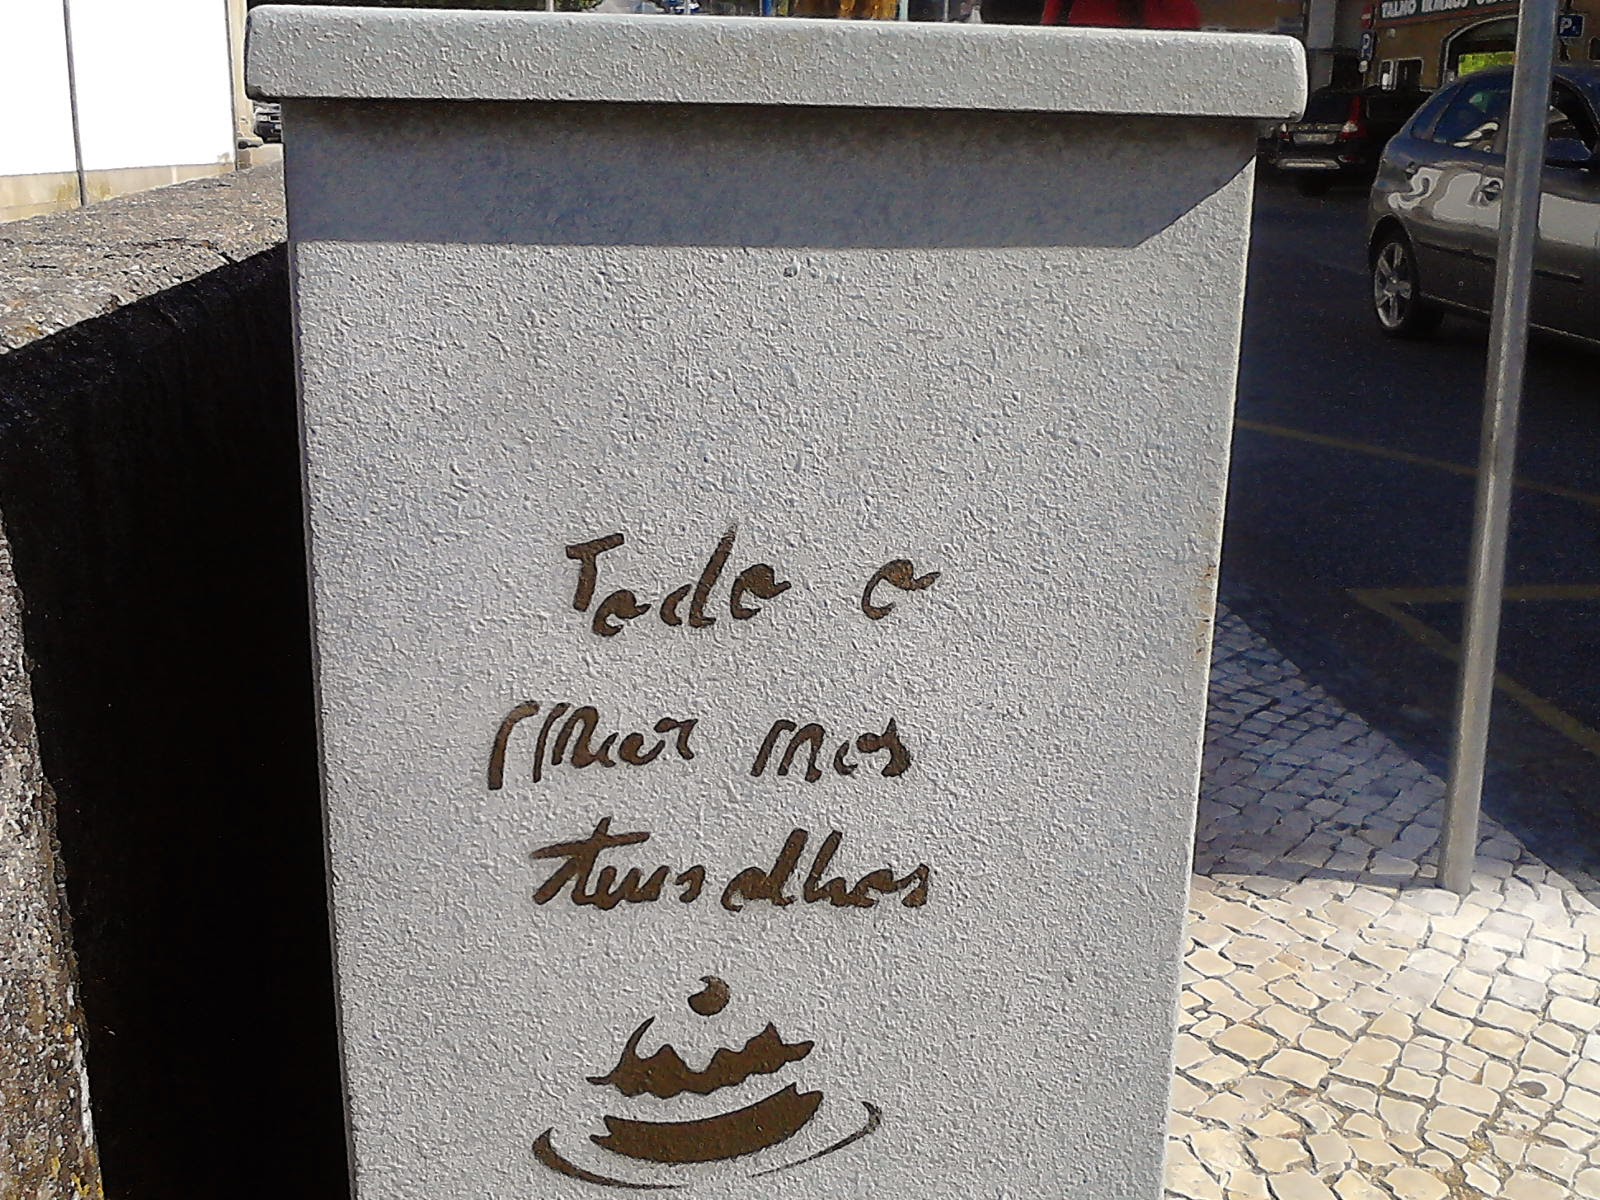 TALHO IRMÃOS
P
P
Todo o
Mar nos
teus olhos